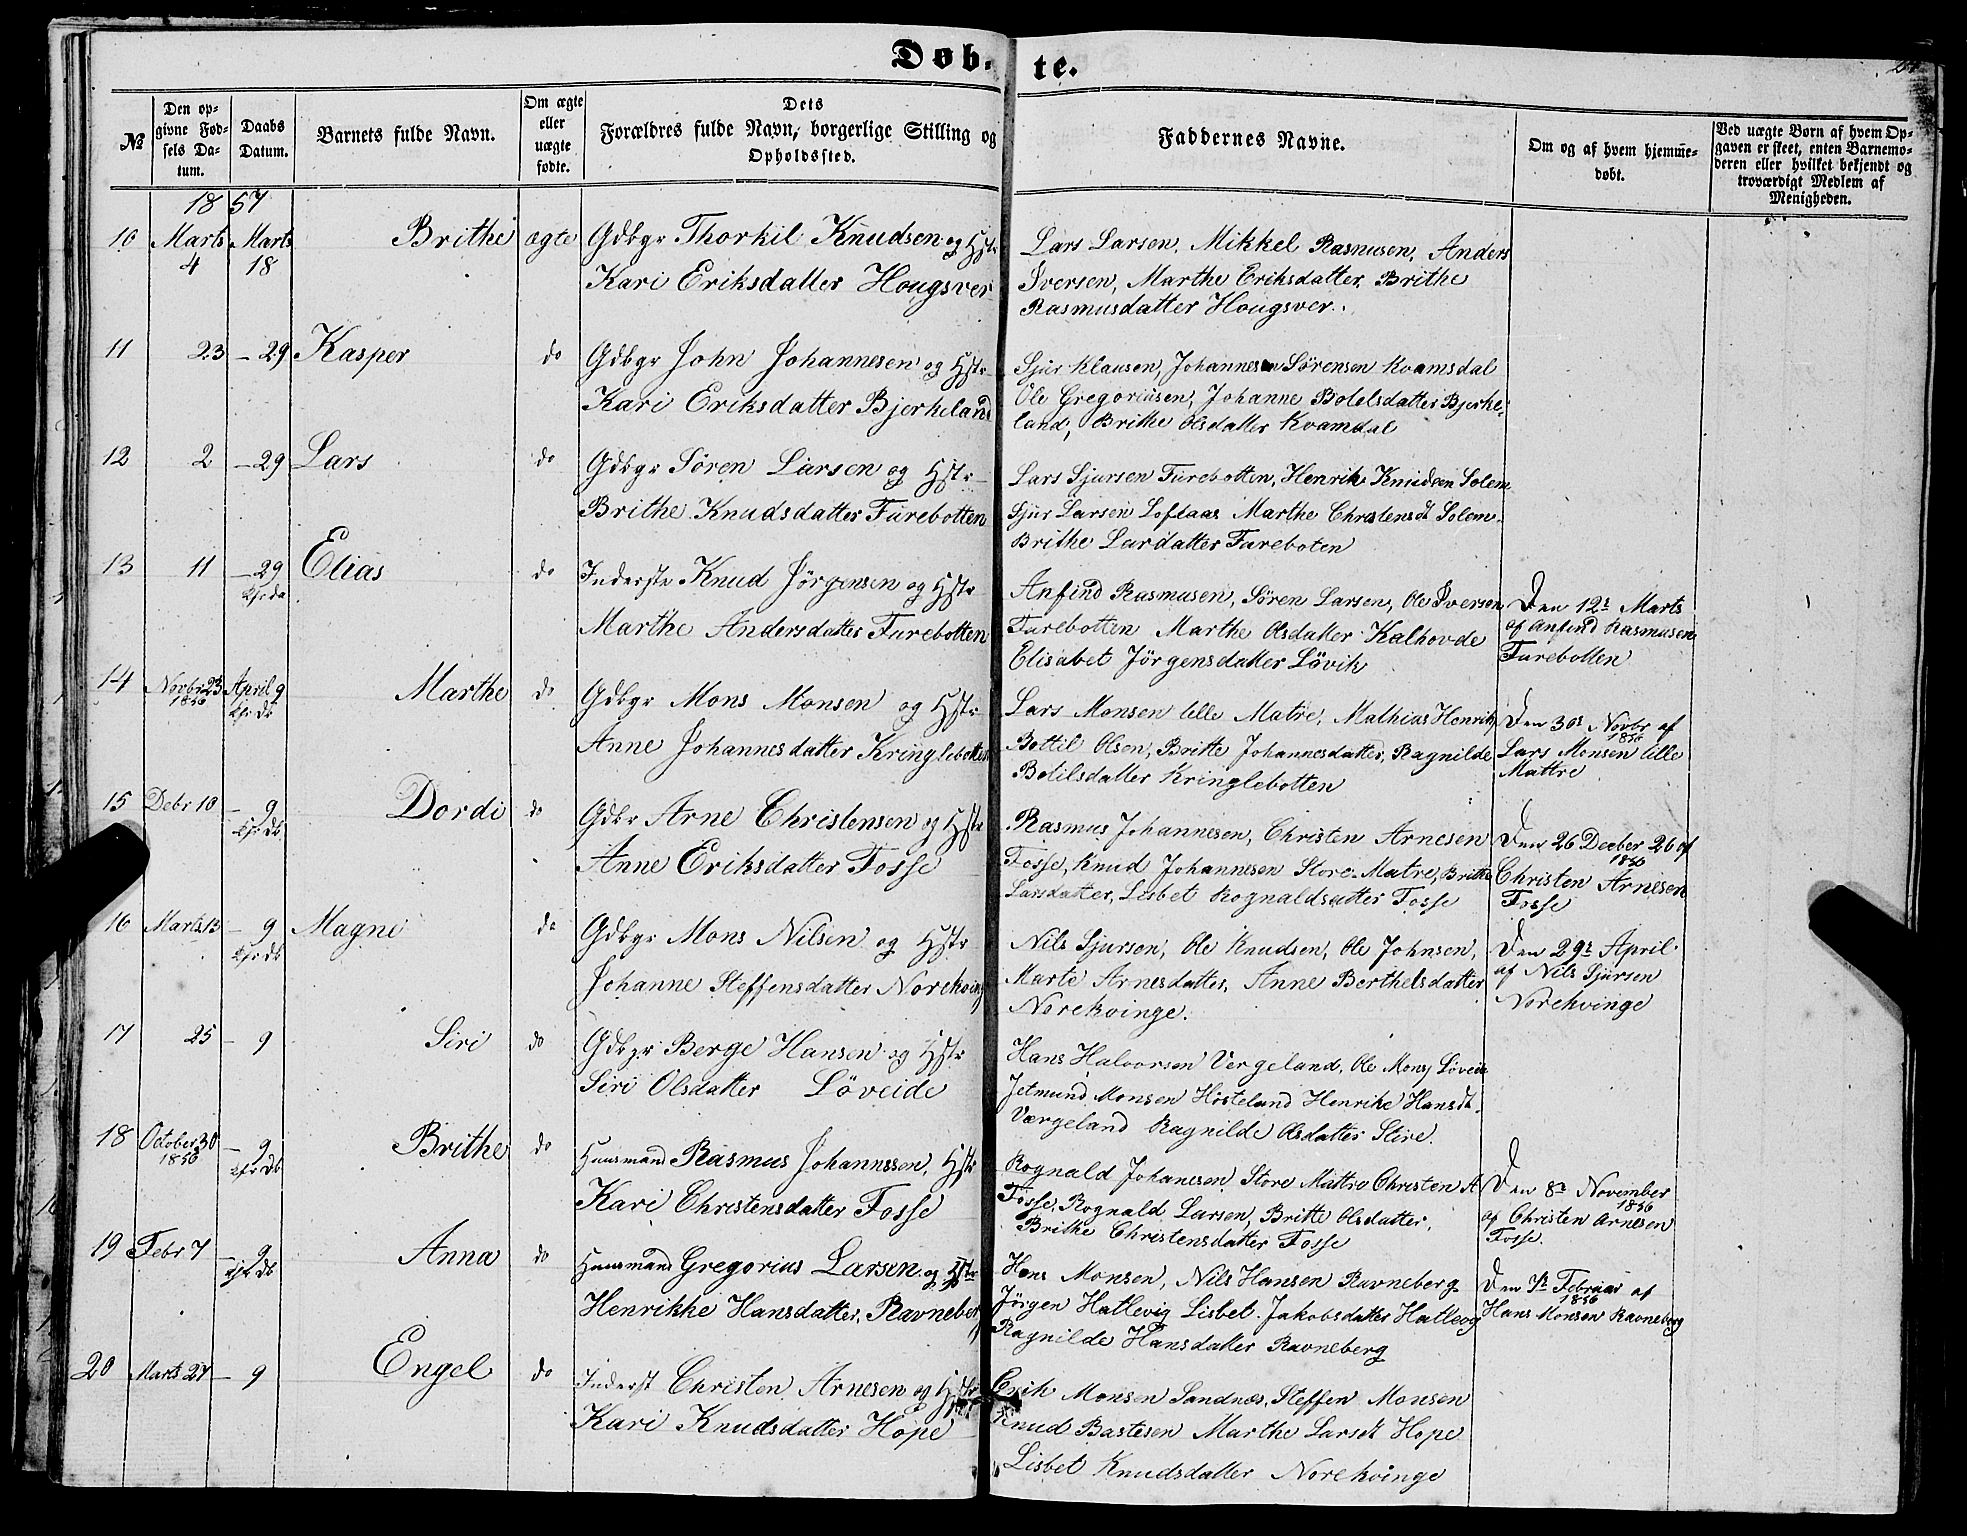 Døb-te.
№
Den op-
givne Fød-
sels Da-
tum.
Daabs
Datum.
Barnets fulde Navn.
Om ægte
eller
uægte
fødte.
Dets
Forældres fulde Navn, borgerlige Stilling og
Opholdssted.
Faddernes Navne.
Om og af hvem hjemme-
døbt.
Ved uægte Børn af hvem Op-
gaven er skeet, enten Barnemo-
deren eller hvilket bekjendt og
troværdigt Medlem af
Menigheden.
1857
10 Marts 4 Marts 18 Brithe ægte Gdbgr Thorkil Knudsen og Hstr
Kari Eriksdatter Hougsver
Lars Larsen, Mikkel Rasmusen, Anders
Iversen, Marthe Eriksdatter, Brithe
Rasmusdatter Hougsver.
11 23 – 29 Kasper do Gdbgr John Johannesen og Hstr
Kari Eriksdatter Bjerkeland
Sjur Klausen, Johannesen Sørensen Kvamsdal
Ole Gregoriusen, Johanne Botelsdatter Bjerke-
land, Brithe Olsdatter Kvamdal
12 2 – 29 Lars do Gdbgr Søren Larsen og Hstr
Brithe Knudsdatter Furebotten
Lars Sjursen Furebotten, Henrik Knudsen Solem
Sjur Larsen Loftaas Marthe Christensdt Solem
Brithe Lardatter Fureboten
13 11 – 29 Elias do Inderste Knud Jørgensen og Hstr
Marthe Andersdatter Furebotten
Anfind Rasmusen, Søren Larsen, Ole Iversen
Furebotten Marthe Olsdatter Kalhovde
Elisabet Jørgensdatter Løvik
Den 12te Marts
af Anfind Rasmusen
Furebotten
14 Novbr 23 1856 April 9 Marthe do Gdbgr Mons Monsen og Hstr
Anne Johannesdatter Kringlebotten
Lars Monsen lille Matre, Mathias Henrik
Bottil Olsen, Britte Johannesdatter, Ragnilde
Botilsdatter Kringlebotten
Den 30s Novbr 1856 af
Lars Monsen lille
Mattre
15 Debr 10 – 9 Dordi do Gdbr Arne Christensen og Hstr
Anne Eriksdatter Fosse
Rasmus Johannesen, Christen Arnesen
Fosse, Knud Johannesen Store Matre, Brithe
Larsdatter, Lisbet Rognaldsdatter Fosse
Den 26 Deeber 26 af 1856
Christen Arnesen
Fosse
16 Marts 13 – 9 Magne do Gdbgr Mons Nilsen og Hstr
Johanne Steffensdatter Norekving
Nils Sjurson, Ole Knudsen, Ole Johnsen,
Marte Arnesdatter, Anne Berthelsdatter
Norekvinge.
Den 29r April
af Nils Sjursen
Norekvinge
17 25 – 9 Siri do Gdbgr Berge Hansen og Hstr
Siri Olsdatter Løveide
Hans Halvorsen Vergeland, Ole Mons Løveide
Jetmund Monsen Hosteland Henrike Hansdt.
Værgeland Ragnilde Olsdatter Stire.
18 October 30 1856 – 9 Brithe do Huusmand Rasmus Johannssen, Hstr
Kari Christensdatter Fosse
Rognald Johanesen Store Mattre Christen A
Fosse, Rognald Larsen, Britte Olsdatter,
Brithe Christensdatter Fosse
Den 8r November 1856
af Christen Arnesen
Fosse.
19 Febr 7 – 9 Anna do Huusmand Gregorius Larsen og Hstr
Henrikke Hansdatter, Ravneberg
Hans Monsen, Nils Hansen Ravneberg
Jørgen Hatlevig Lisbet Jakobsdatter Hatlevg
Ragnilde Hansdatter Ravneberg
Den 7r Februar 1856 af
Hans Monsen Ravneberg
20 Marts 27 – 9 Engel do Inderst Christen Arnesen og Hstr
Kari Knudsdatter Hope
Erik Monsen Sandnæs, Steffen Monsen
Knud Bastesen Marthe Larsdt Hope
Lisbet Knudsdatter Norekvinge